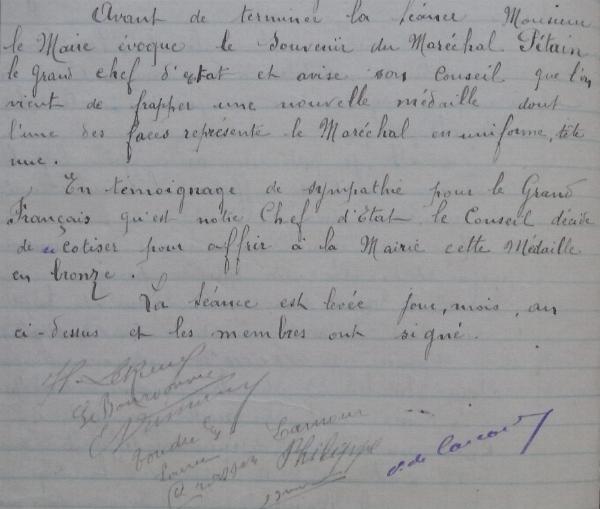 Avant de terminer la séance Monsieur
le Maire évoque le Souvenir du Maréchal Pétain
le Grand chef d'etat et avise son Conseil que l'on
vient de frapper une nouvelle médaille dont
l'une des faces représente le Maréchal en uniforme, tête
nue.
En témoignage de sympathie pour le Grand
Français qu'est notre Chef d'Etat le Conseil décide
de se cotiser pour affrir à la Mairie cette Médaille
en bronze.
La séance est levée jour, mois, an
ci-dessus et les membres ont signé.
Le Bourdonnec
Lamour
Philippe